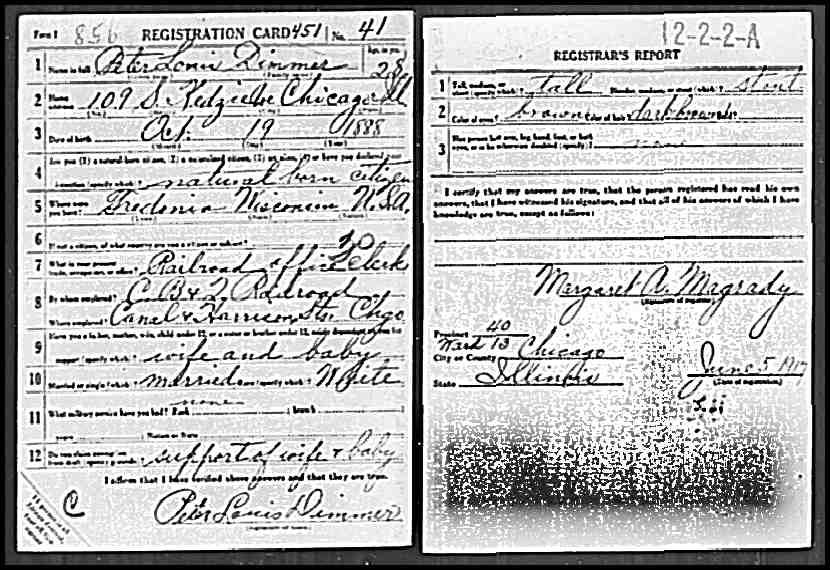 Form 1 856 REGISTRATION CARD 451 No. 41
1 Name in full Peter Louis Dimmer Age, in yrs. 28
2 Home address 109 S. Kedzie Ave Chicago Ill
3 Date of birth Oct. 19 1888
(Month) (Day) (Year)
4 Are you (1) a natural-born citizen, (2) a naturalized citizen, (3) an alien, (4) or have you declared your
intention (specify which)? natural born citizen
5 Where were you born? Fredonia Wisconsin U.S.A.
6 If not a citizen, of what country are you a citizen or subject?
7 What is your present trade, occupation, or office? Railroad office Clerk
8 By whom employed? C. B. & Q Railroad
Where employed? Canal & Harrison Sts. Chgo
9 Have you a father, mother, wife, child under 12, or a sister or brother under 12, solely dependent on you for
support (specify which)? wife and baby
10 Married or single (which)? married Race (specify which)? White
none
11 What military service have you had? Rank ; branch
years ; Nation or State
12 Do you claim exemption from draft (specify grounds)? support of wife & baby
I affirm that I have verified above answers and that they are true.
C
Peter Louis Dimmer
(Signature or mark)
12-2-2-A
REGISTRAR'S REPORT
1 Tall, medium, or short (specify which)? tall Slender, medium, or stout (which)? stout
2 Color of eyes? brown Color of hair? dark brown
3 Has person lost arm, leg, hand, foot, or both
eyes, or is he otherwise disabled (specify)?
I certify that my answers are true, that the person registered has read his own
answers, that I have witnessed his signature, and that all of his answers of which I have
knowledge are true, except as follows:
Margaret A. Magrady
(Signature of registrar)
Precinct 40
Ward 13
City or County Chicago
State Illinois
June 5, 1917
(Date of registration)